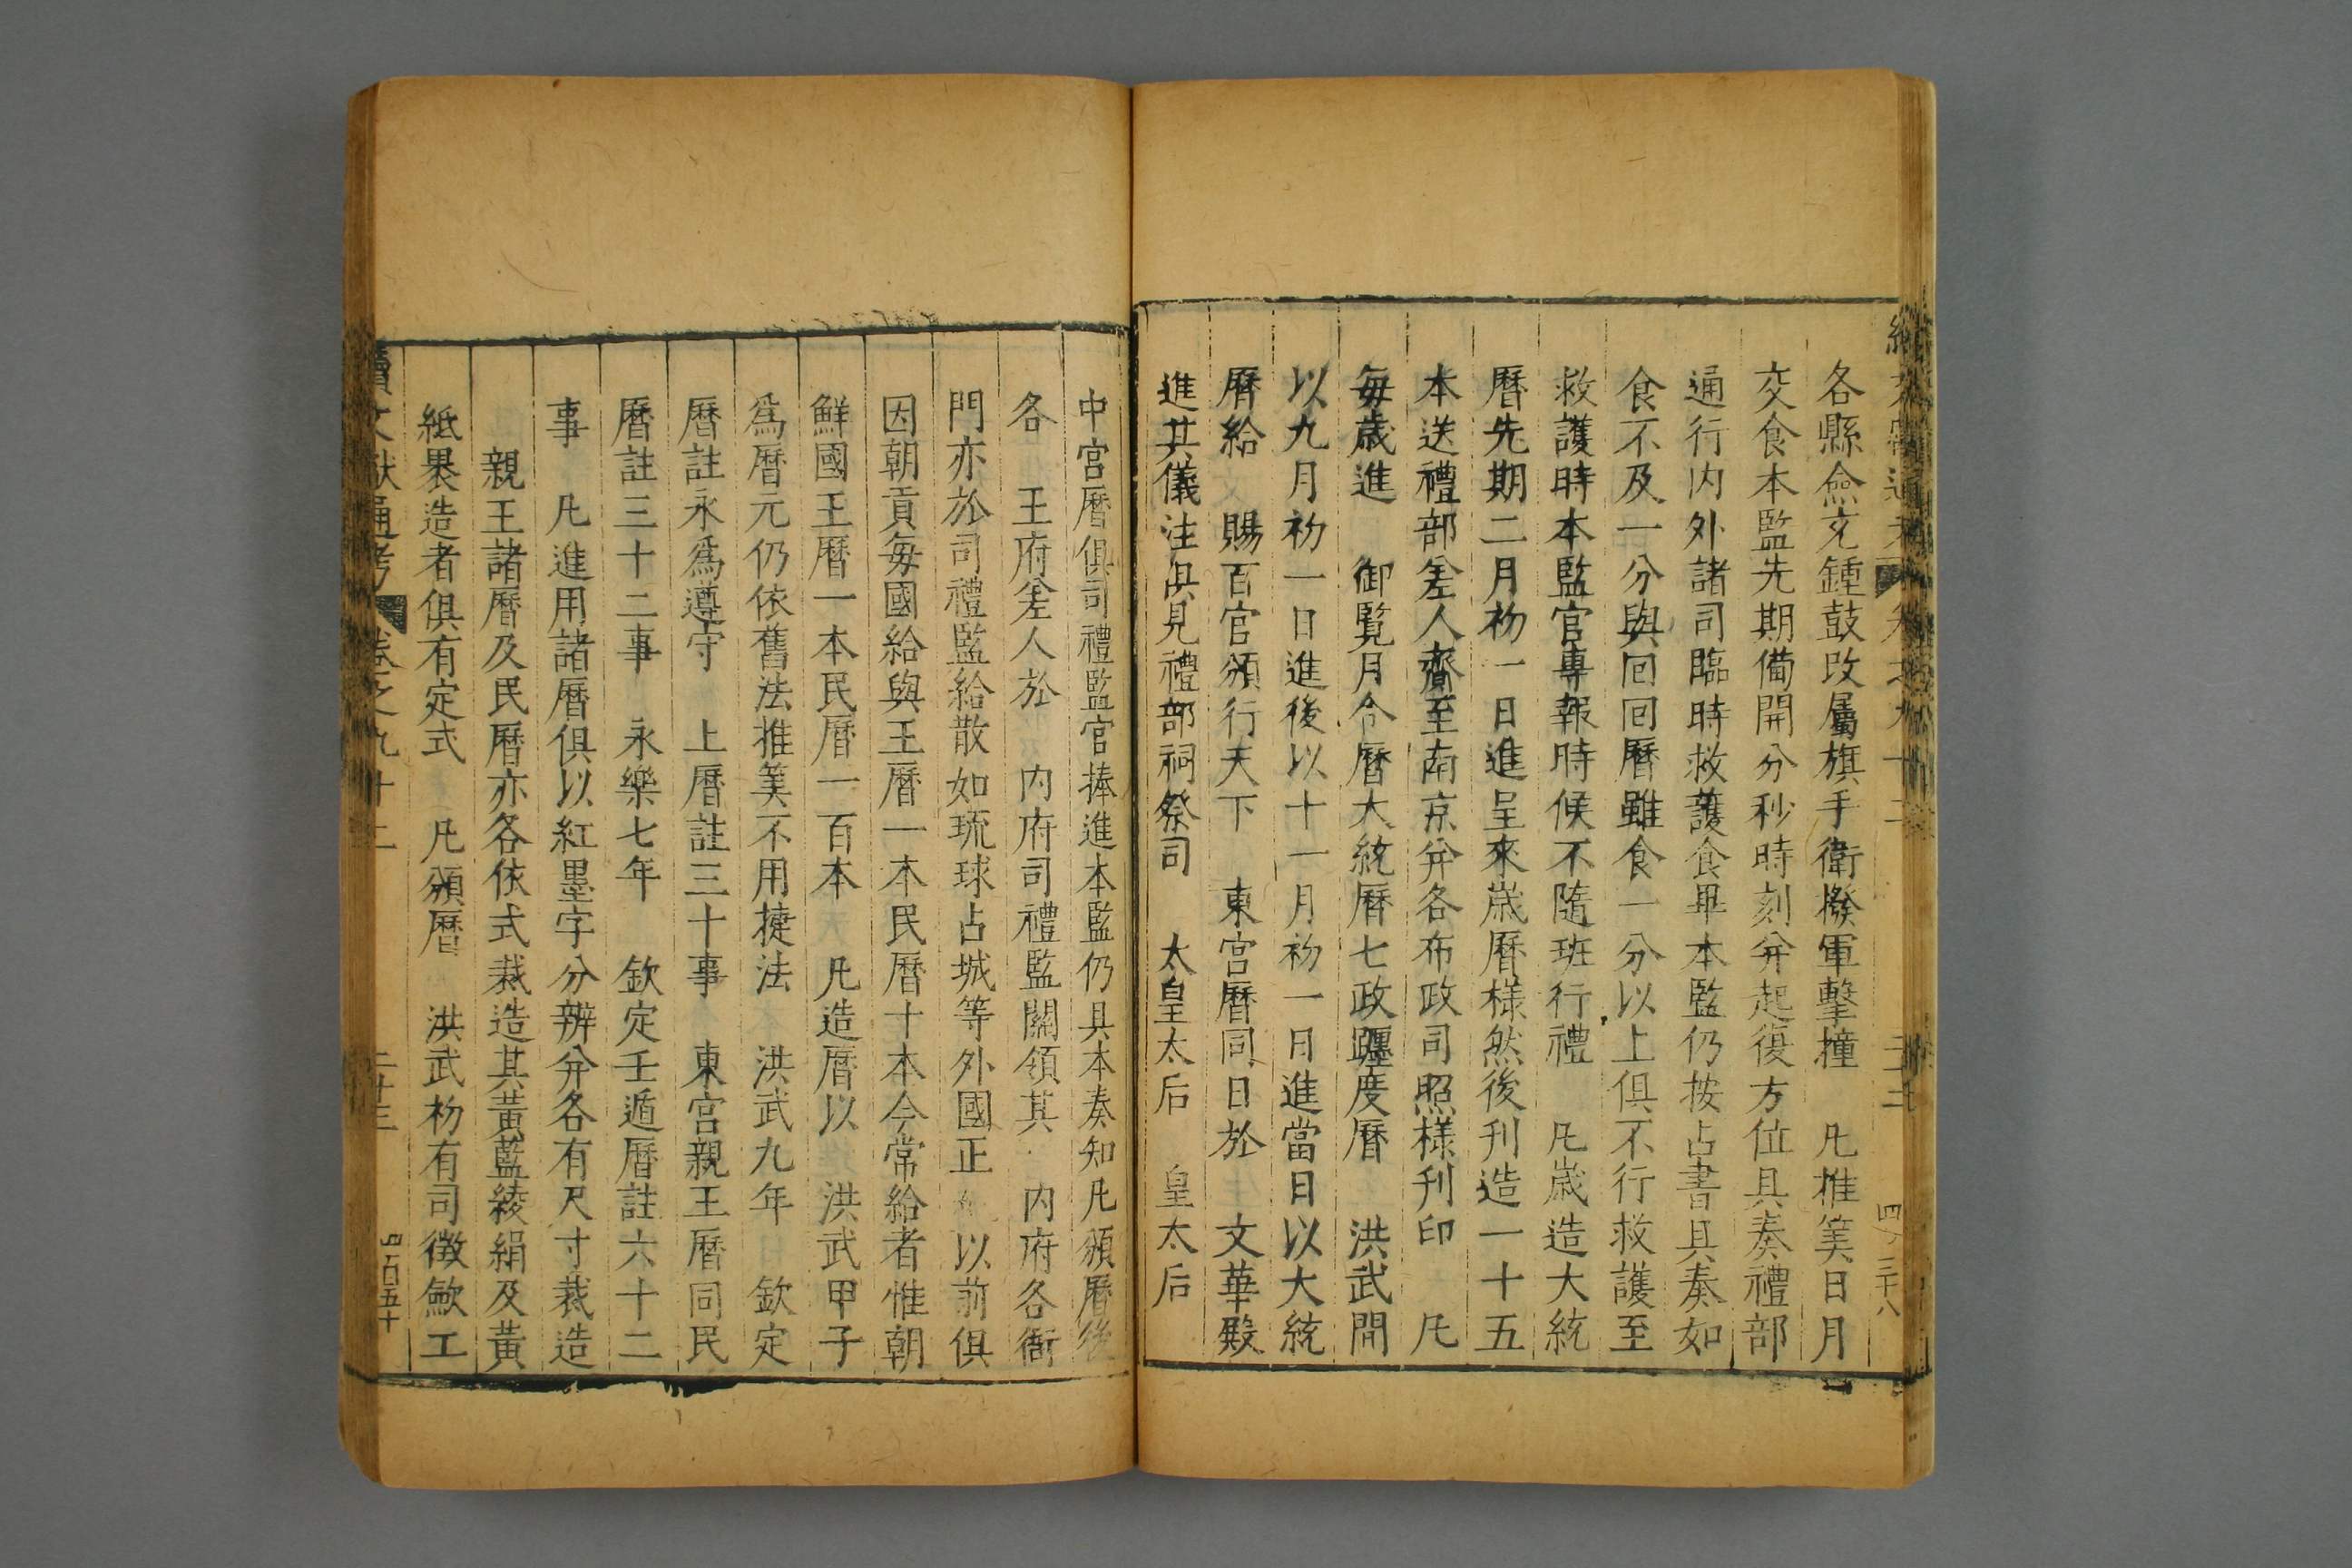 各縣僉充鍾鼓改屬旗手衛撥軍擊撞　凡推筭日月
交食本監先期備開分秒時刻并起復方位具奏禮部
通行内外諸司臨時救護食畢本監仍按占書具奏如
食不及一分與回回曆雖食一分以上俱不行救護至
救護時本監官專報時候不隨班行禮　凡歲造大統
曆先期二月初一日進呈來歲曆樣然後刋造一十五
本送禮部差人齎至南京并各布政司照樣刋印　凡
每歲進　御覧月令曆大統曆七政躔度曆　洪武間
以九月初一日進後以十一月初一日進當日以大統
曆給　賜百官頒行天下　東宮曆同日於　文華殿
進其儀注俱見禮部祠祭司　太皇太后　皇太后
中宮曆俱司禮監官捧進本監仍具本奏知凡頒曆後
各　王府差人於　内府司禮監關領其　内府各衙
門亦於司禮監給散如琉球占城等外國正　以前俱
因朝貢每國給與王曆一本民曆十本今常給者惟朝
鮮國王曆一本民曆一百本　凡造曆以　洪武甲子
爲曆元仍依舊法推筭不用捷法　洪武九年　欽定
曆註永爲遵守　上曆註三十事　東宮親王曆同民
曆註三十二事　永樂七年　欽定壬遁曆註六十二
事　凡進用諸曆俱以紅墨字分辨并各有尺寸裁造
親王諸曆及民曆亦各依式裁造其黃藍綾絹及黃
紙褁造者俱有定式　凡頒曆　洪武初有司徵歛工
續文獻通考　卷之九十二　二十三